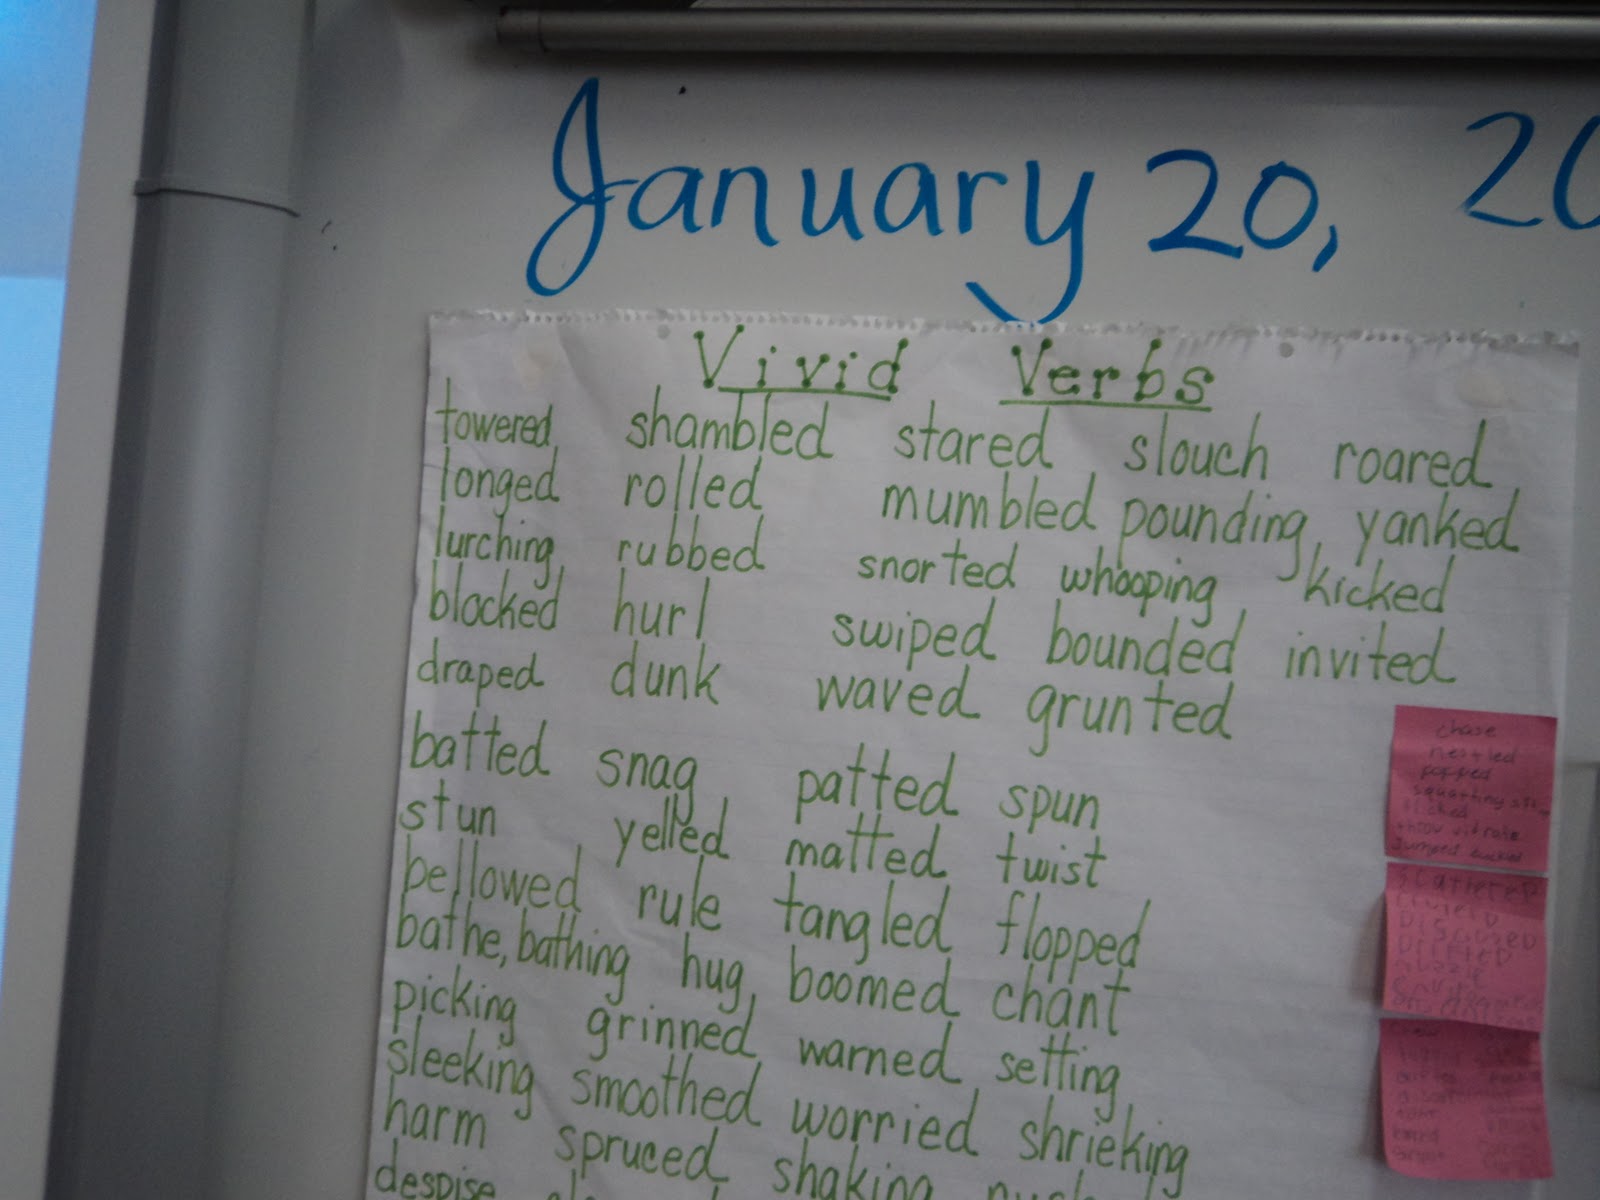 January 20, 20
Vivid Verbs
towered shambled stared slouch roared
longed rolled mumbled pounding yanked
lurching rubbed snorted whooping kicked
blocked hurl swiped bounded invited
draped dunk waved grunted
batted snag patted spun
stun yelled matted twist
bellowed rule tangled flopped
bathe, bathing hug boomed chant
picking grinned warned setting
sleeking smoothed worried shrieking
harm spruced shaking
despise
chase
nestled
popped
squatting
throw vibrate
Jumped